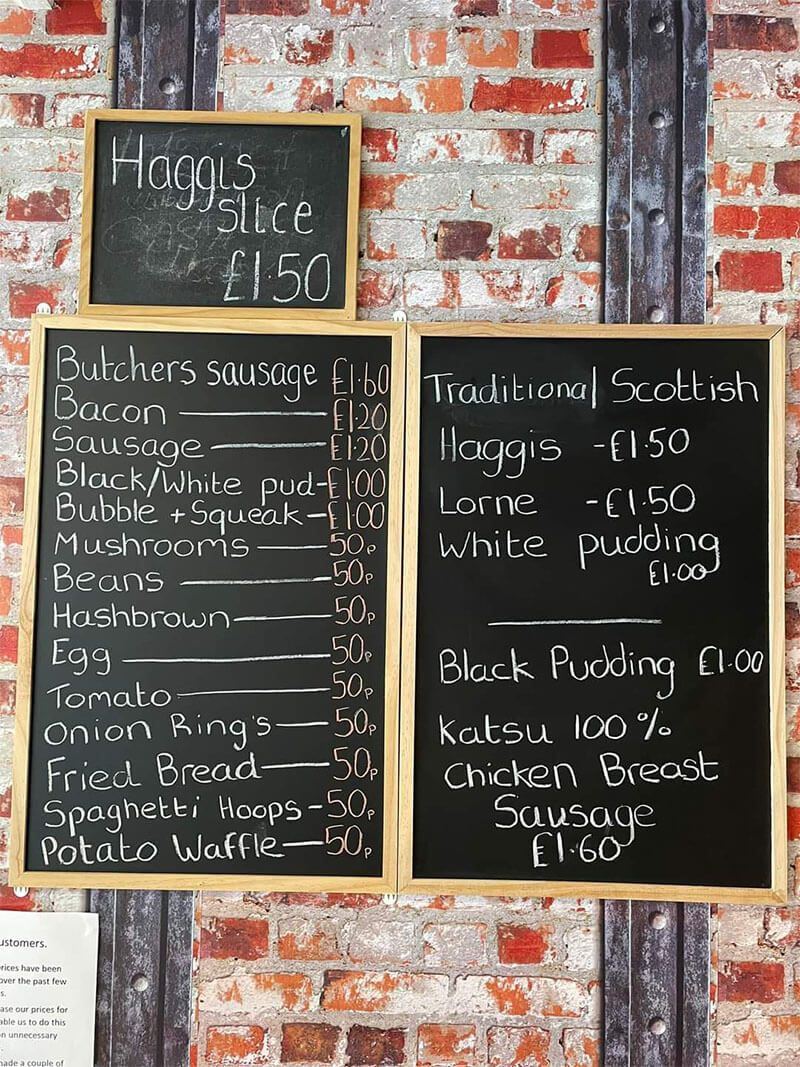 Haggis
slice
£1.50
Butchers sausage £1.60
Bacon — £1.20
Sausage — £1.20
Black/White pud - £1.00
Bubble + Squeak - £1.00
Mushrooms — 50p
Beans — 50p
Hashbrown — 50p
Egg — 50p
Tomato — 50p
Onion Ring's — 50p
Fried Bread — 50p
Spaghetti Hoops - 50p
Potato Waffle — 50p
Traditional Scottish
Haggis - £1.50
Lorne - £1.50
White pudding
£1.00
Black Pudding £1.00
Katsu 100%
Chicken Breast
Sausage
£1.60
ustomers.
rices have been
over the past few
s.
ase our prices for
able us to do this
n unnecessary
made a couple of